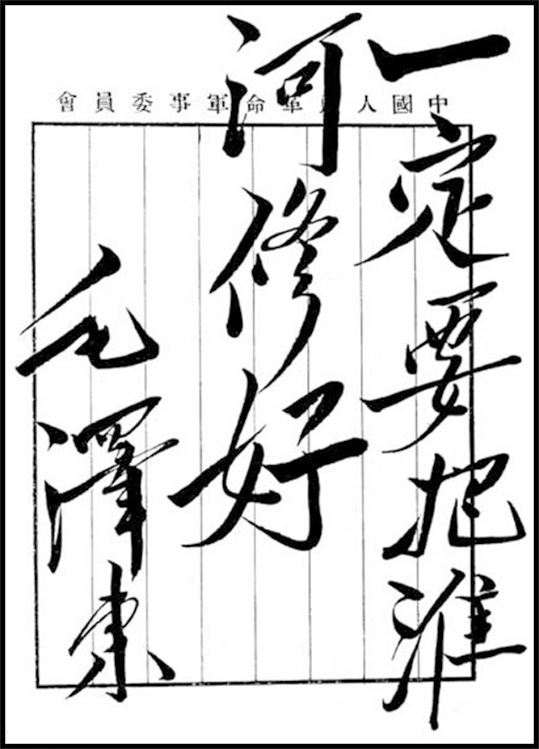 中國人民革命軍事委員會
一定要把淮
河修好
毛澤東